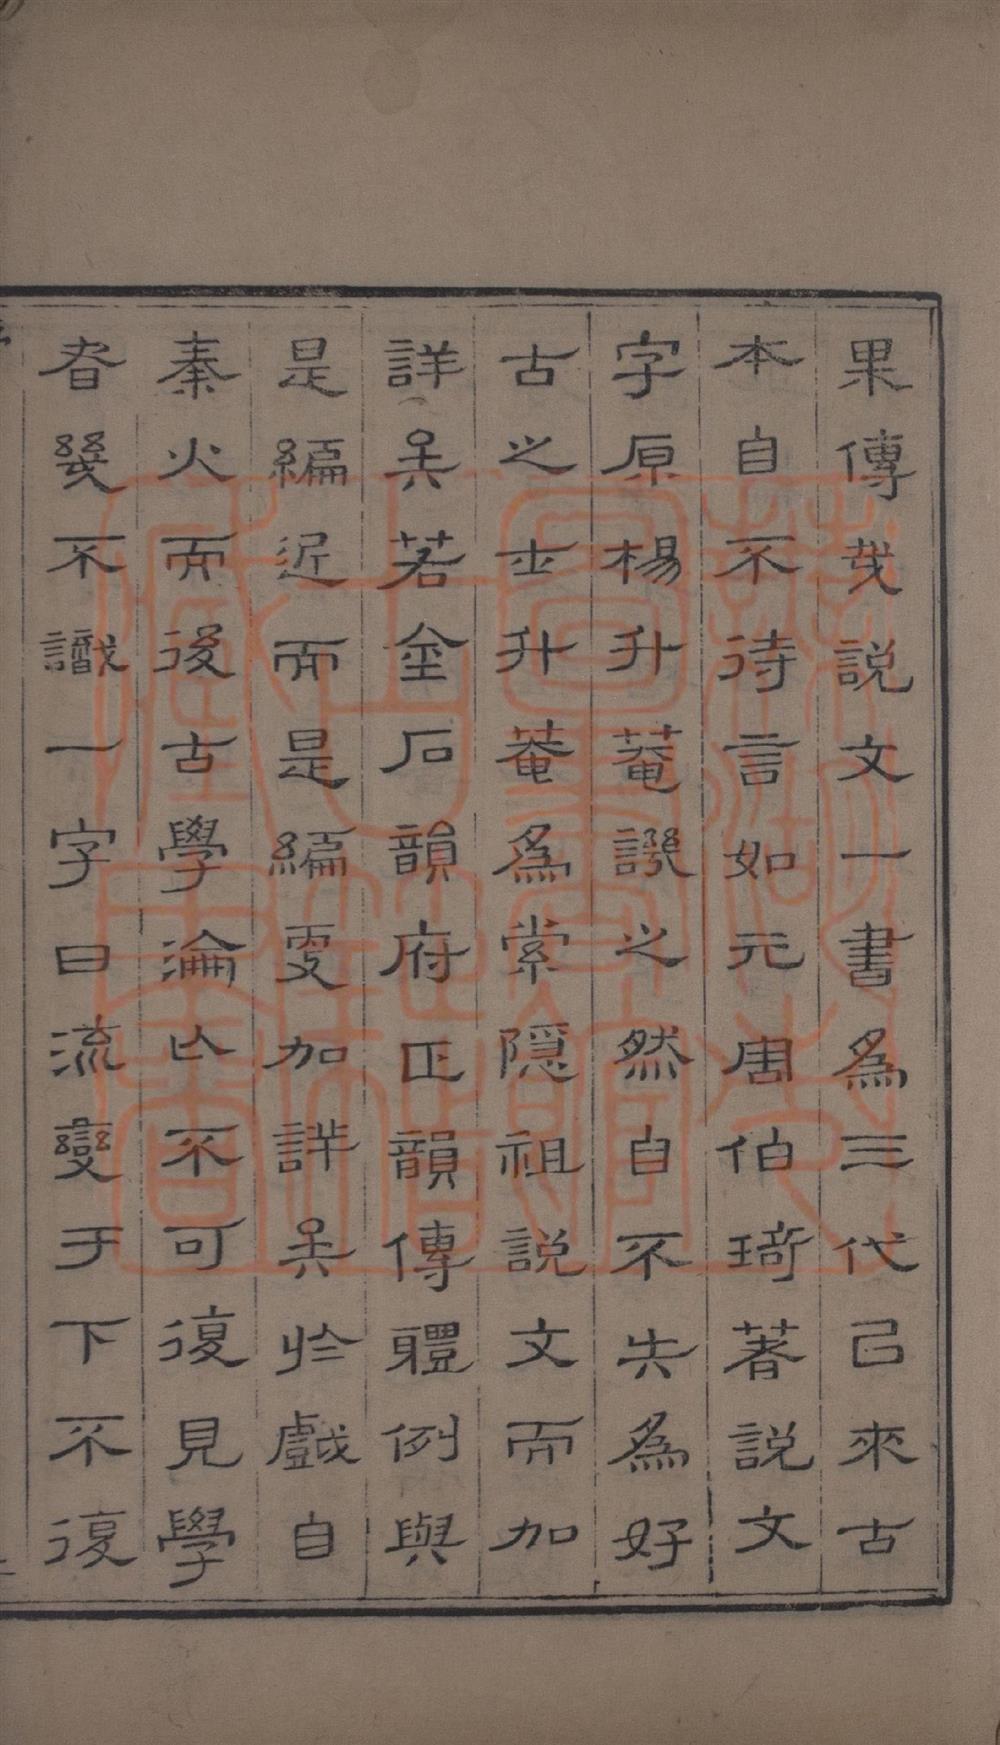 果傳哉説文一書為三代己來古
本自不待言如元周伯琦著説文
字原楊升菴譏之然自不失為好
古之士升菴為索隱祖説文而加
詳矣若金石韻府正韻傳體例與
是編近而是編更加詳矣於戲自
秦火而後古學淪亾不可復見學
者幾不識一字曰流變于下不復